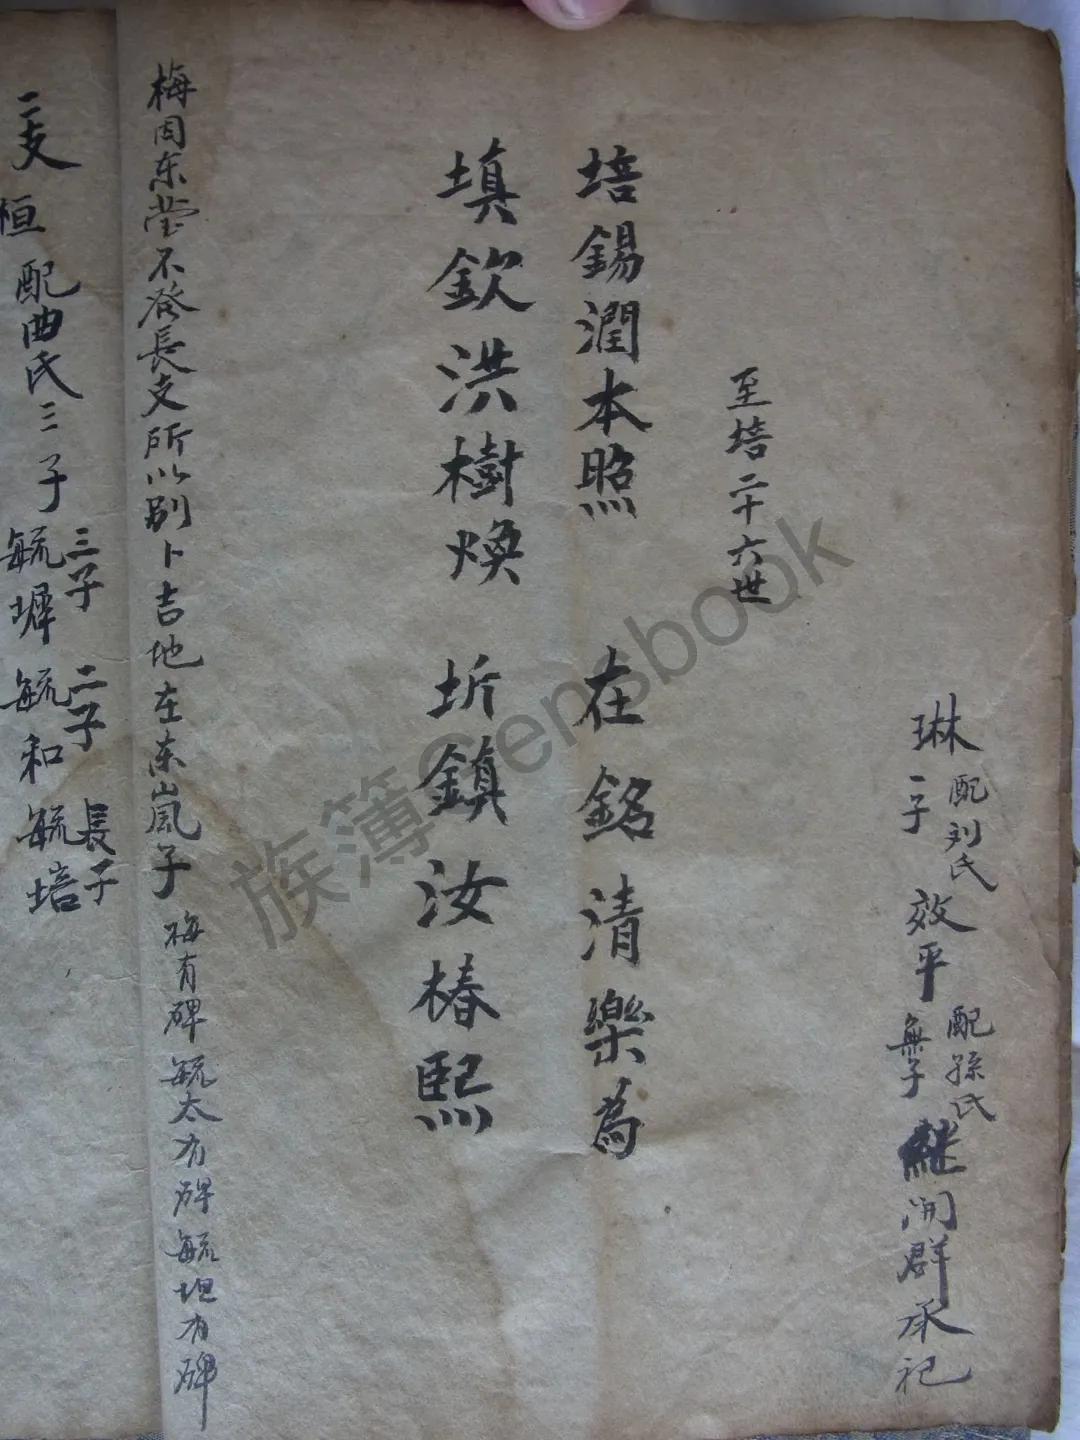 琳 配刘氏 一子 效平 配孫氏 無子 継開群承祀
至培二十六世
培錫潤本照 在銘清樂為
填欽洪樹煥 圻鎮汝椿熙
梅因东茔不发長支所以别卜吉地在东嵐子 梅有碑毓太有碑毓坦有碑
二支 恒 配曲氏三子 毓墀 三子 毓和 二子 毓培 長子
族簿@ensbook